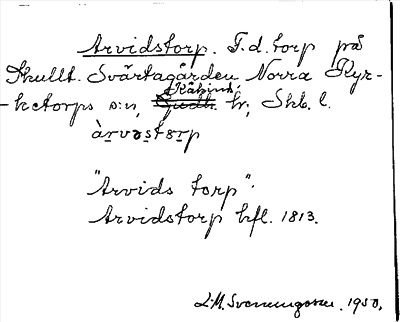 Arvidstorp. F.d. torp på
Skullt. Svärtagården Norra Kyr-
-ketorps s:n, Kåkinds hr, Skb. l.
àrvəstɷrp
"Arvids torp".
Arvidstorp hfl. 1813.
L.M. Svenungsson. 1950.